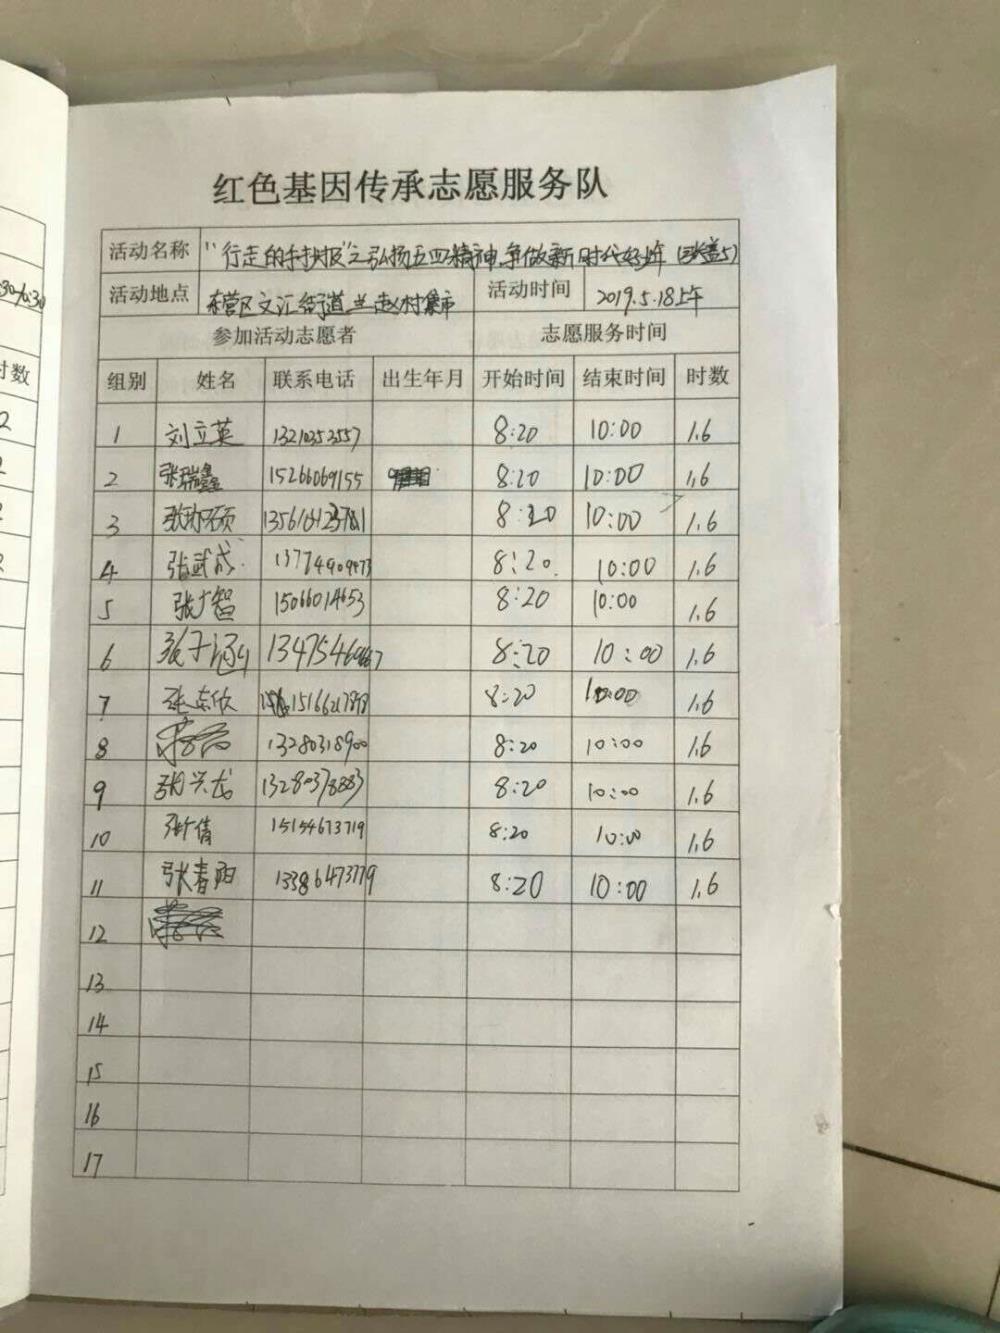 红色基因传承志愿服务队
活动名称 "行走的手抄报"之弘扬五四精神,争做新时代好少年
活动地点 东营区文汇街道兰赵村集市 活动时间 2019.5.18上午
参加活动志愿者 志愿服务时间
组别 姓名 联系电话 出生年月 开始时间 结束时间 时数
1 刘立英 13210353557 8:20 10:00 1.6
2 张瑞鑫 15266069155 8:20 10:00 1.6
3 8:20 10:00 1.6
4 张武成 8:20 10:00 1.6
5 张广智 15066014653 8:20 10:00 1.6
6 8:20 10:00 1.6
7 15166217898 8:20 10:00 1.6
8 13280318900 8:20 10:00 1.6
9 张兴龙 13280378883 8:20 10:00 1.6
10 张倩 15154673719 8:20 10:00 1.6
11 张春雨 13386473779 8:20 10:00 1.6
12
13
14
15
16
17
时数
2